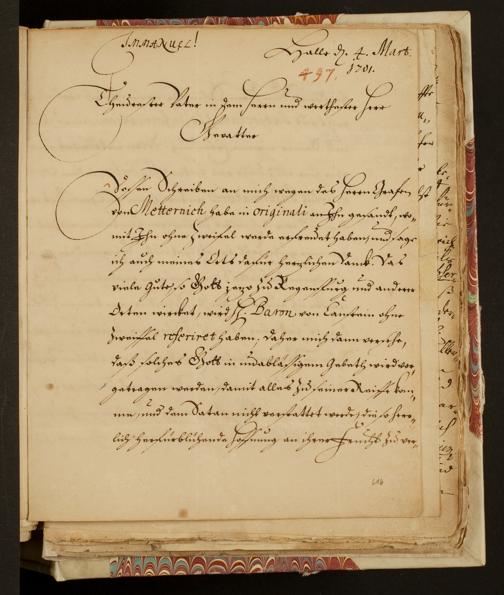 IMMANUEL!
Halle d. 4. Mart.
1701.
497.
Theurester Vater in dem Herrn und werthester Herr
Gevatter
Dessen Schreiben an mich wegen des Herrn Grafen
von Metternich habe in originali an Ihn gesandt, wo-
mit Ihn ohne Zweifel werde erfreuet haben, und sage
ich auch meines Orts dafür herzlichen Danck. Das
viele Gute, so Gott jezo zu Regenspurg und anderer
Orten wircket, wird H. Baron von Canstein ohne
Zweiffel referiret haben, daher mich dann versehe,
daß solches Gott in unabläßigem Gebeth wird vor-
getragen werden, damit alles zu seiner Reiffe kom-
me, und dem Satan nicht verstattet werde, diese herr-
lich herfürblickende Hoffnung an ihrer Frucht zu ver-